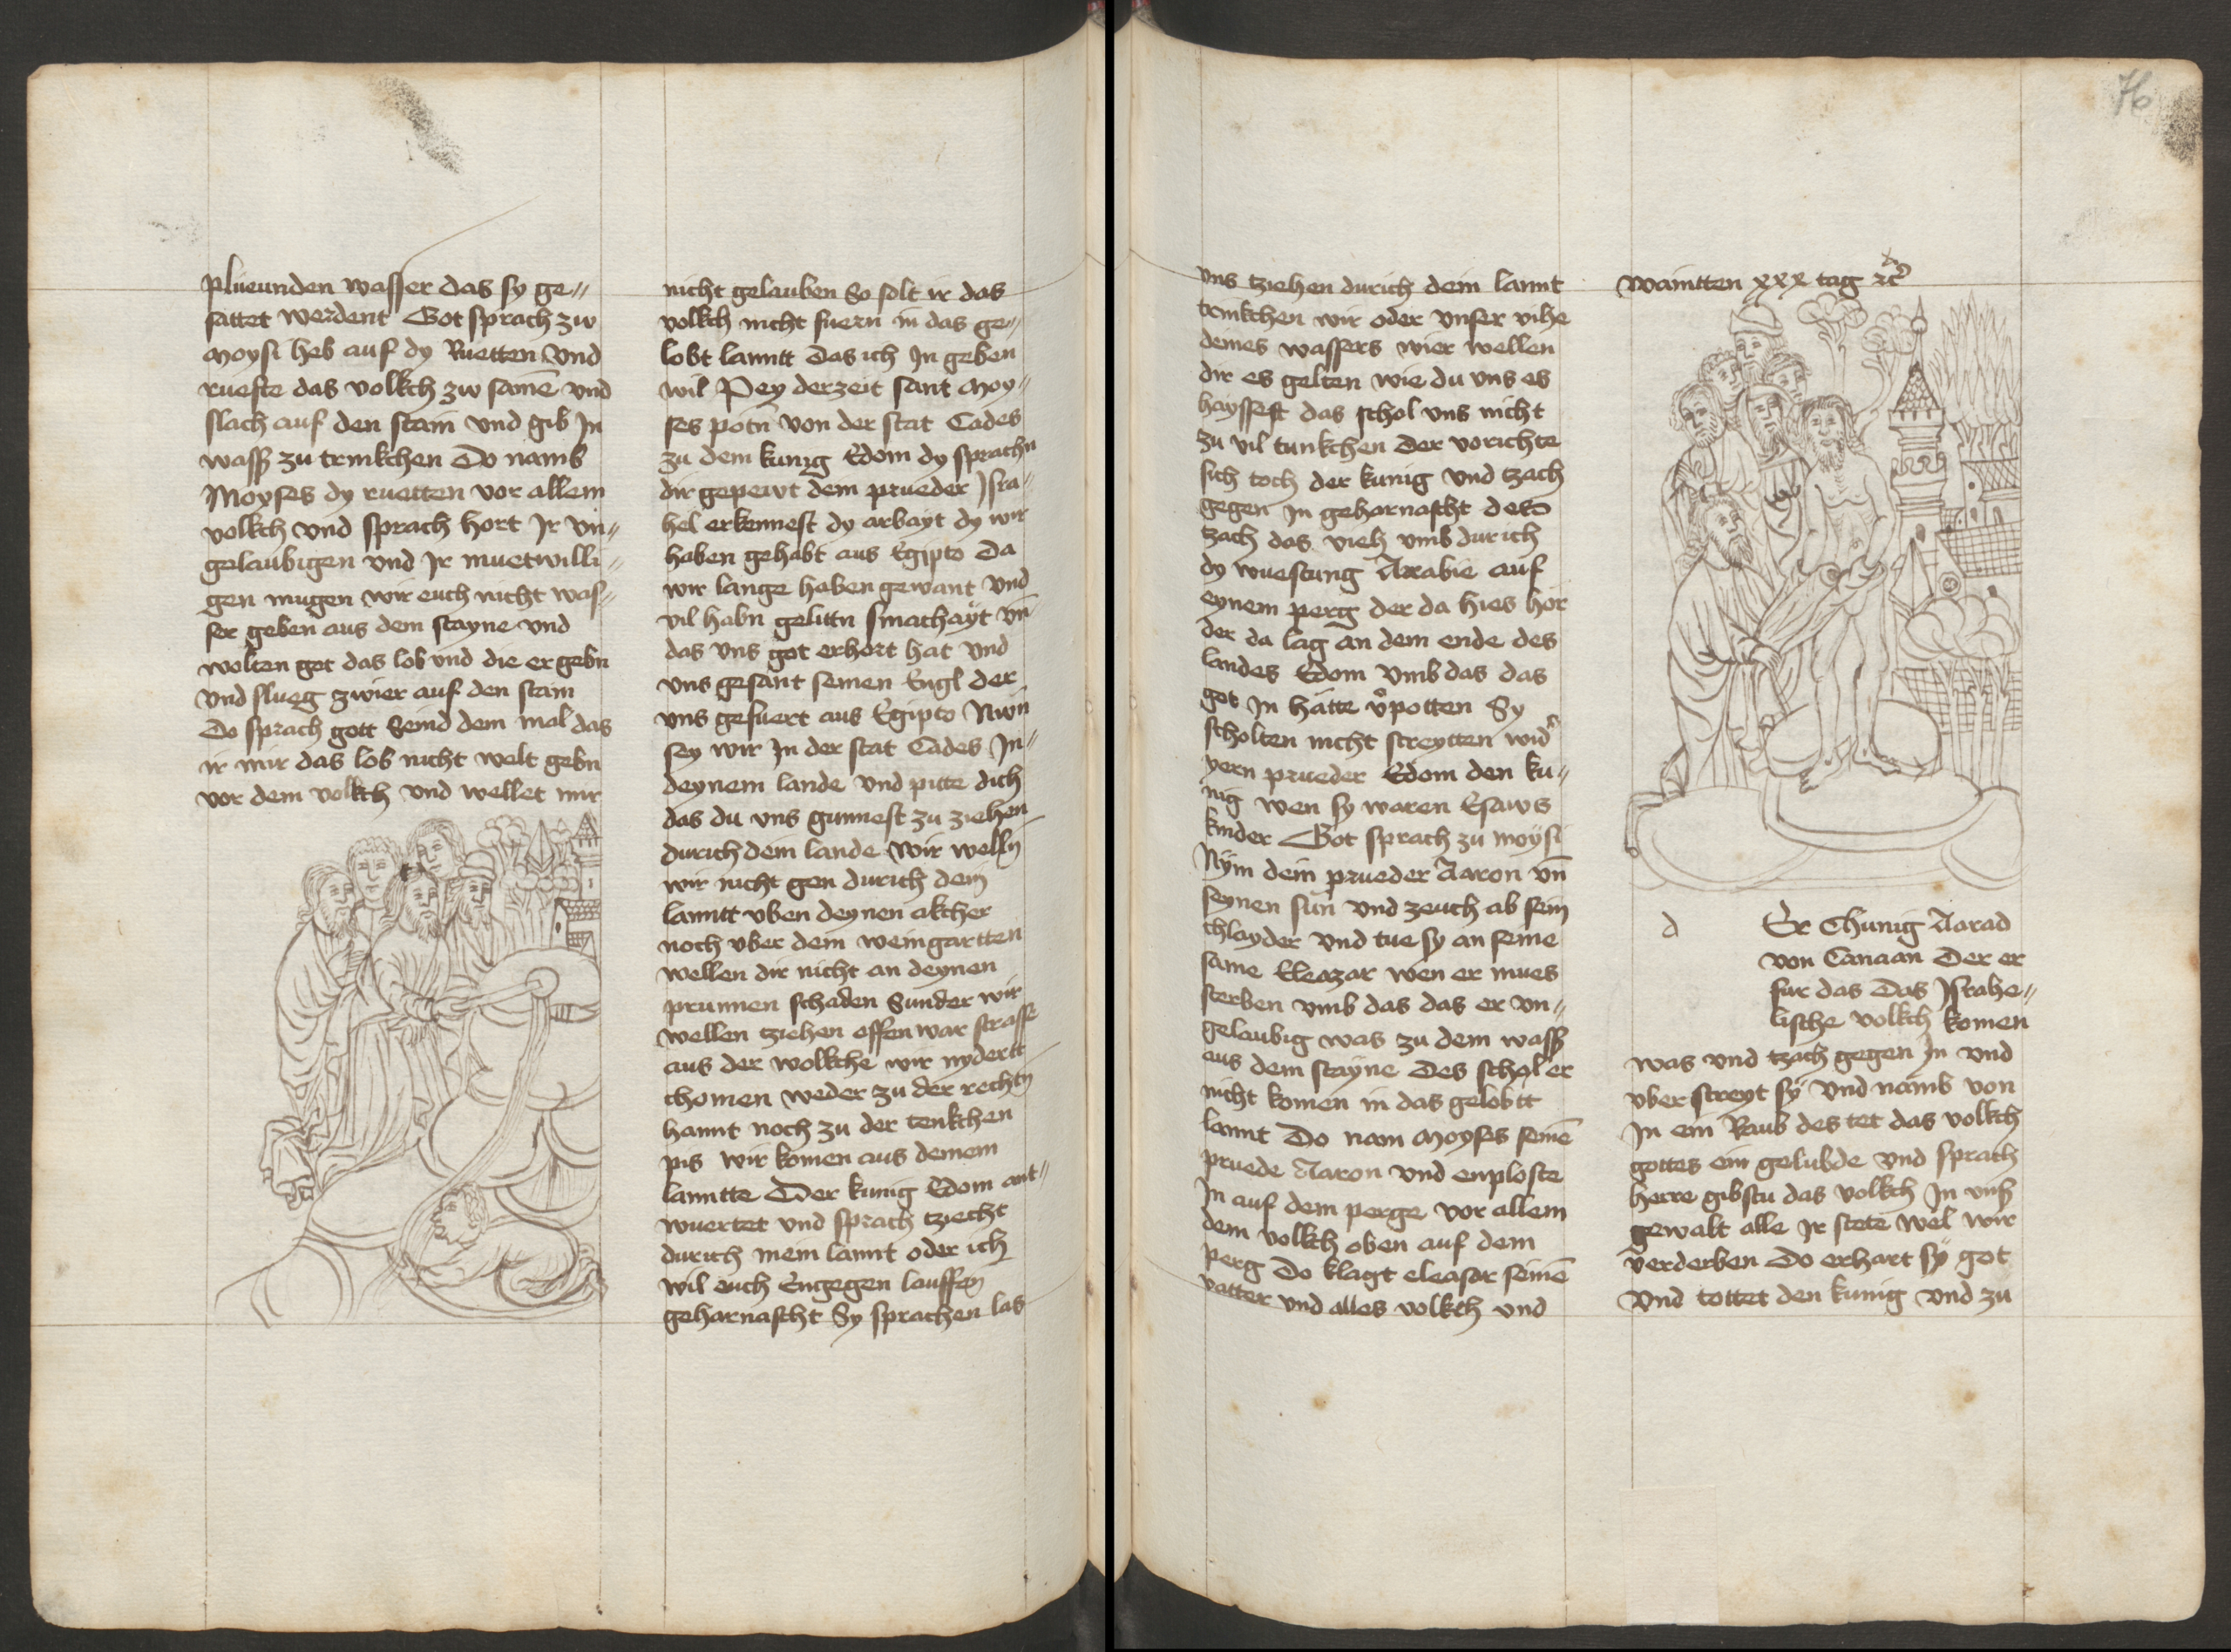 plüeunden wasser das sy ge〃
sattet werdent Got sprach zw
Moysi heb auf dy Ruetten Vnd
ruefte das volkch zw samē vnd
slach auf den stain vnd gib In
wasß zu trinkchen Do namb
Moyses dy ruetten vor allem
volkch vnd sprach hort Jr vn〃
gelaubigen vnd Jr muetwilli〃
gen mugen wir euch nicht was〃
ser geben aus dem stayne vnd
wolten got das lob vnd die er gebn
Vnd slueg zwier auf den stain
Do sprach gott Seind dem mal das
ir mir das lob nicht welt gebn
vor dem volkch vnd wellet mir
nicht gelauben So solt ir das
volkch nicht fuern in das ge〃
lobt lanntt das ich In geben
wil Pey derzeit sant Moy〃
ses potn von der stat Cades
zu dem kunig Edom dy sprachn
dir gepewt dem prueder Jsra〃
hel erkennest dy arbayt dy wir
haben gehabt aus Egipto Da
wir lange haben gewant Vnd
vil habn gelittn smachayt vn̄
das vns got erhort hat vnd
vns gesant seinen Engl der
vns gefuert aus Egipto Nwn
sey wir In der stat Cades In〃
deynem lande vnd pitte dich
das du vns gunnest zu ziehen
durich dem lande Wir welln
wir nicht gen durich dein
lanntt vben deynen akcher
noch vber dein weingartten
wellen dir nicht an deynen
prunnen schaden Sunder wir
wellen tziehen offen war strasse
aus der wolkche wir nydertt
chomen weder zu der rechtn
hannt noch zu der tenkchen
pis wir komen aus deinem
lanntte Der kunig Edom ant〃
wuertet vnd sprach tziecht
durich mein lannt oder ich
wil euch Engegen lauffen
geharnascht Sy sprachen las
vns tziehen durich dein lannt
trinkchen wir oder vnser vihe
deines wassers wier wellen
dir es gelten wie du vns es
hayssest das schol vns nicht
zu vil tunkchen Der vorichte
sich toch der kunig vnd tzach
gegen In geharnascht
tzach das vieh vmb durich
dy wuestung Arabie auf
eynem perg der da hies hor
der da lag an dem ende des
landes Edom Vmb das das
got In hátte v̊potten Sy
scholten nicht streytten wid̊
yern prueder Edom den ku〃
nig wen sy waren Esaws
kinder Got sprach zu moÿsi
Nÿm dein prueder Aaron vn̄
seynen sun vnd zeuch ab sein
chlayder vnd tue sy an seine
same Eleazar wen er mues
sterben vmb das das er vn〃
gelaubig was zu dem wasß
aus dem stayne Des schol er
nicht komen in das gelobtt
lannt Do nam Moyses seinē
pruede Aaron vnd enploste
In auf dem perge vor allem
dem volkch oben auf dem
perg Do klagt eleasar seinē
vatter vnd alles volkch vnd
76
waintten xxx tag
d
Er Chunig Aarad
von Canaan Der er
fur das Das Jsrahe〃
lische volkch komen
was vnd tzach gegen In vnd
vber streyt sy Vnd namb von
In ein Raub des tet das volkch
gottes ein gelubde vnd sprach
herre gibstu das volkch In vnsß
gewalt alle Jr stete wel wir
verderben Do erhart sÿ got
Vnd tottet den kunig vnd zu